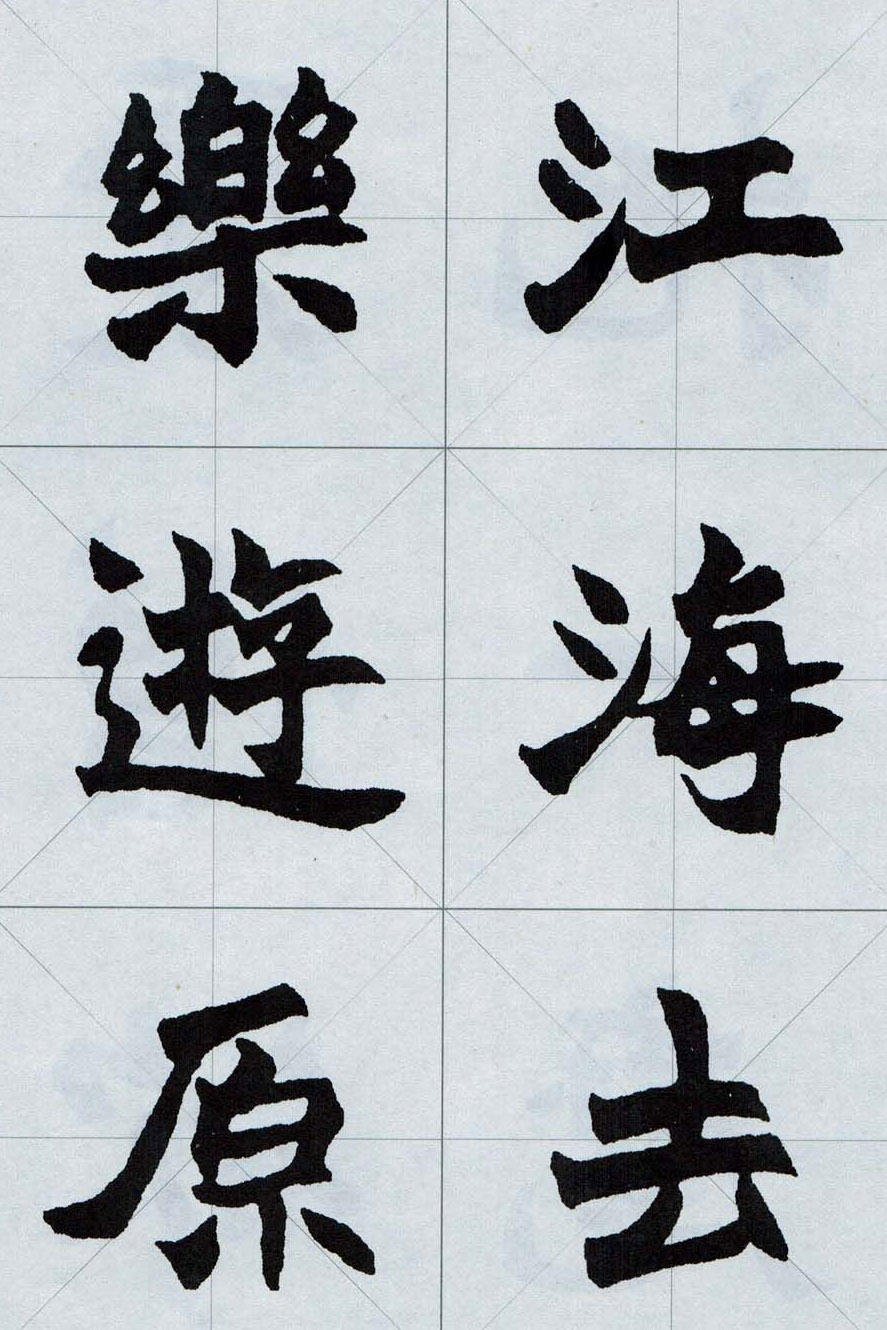 江海去
樂遊原